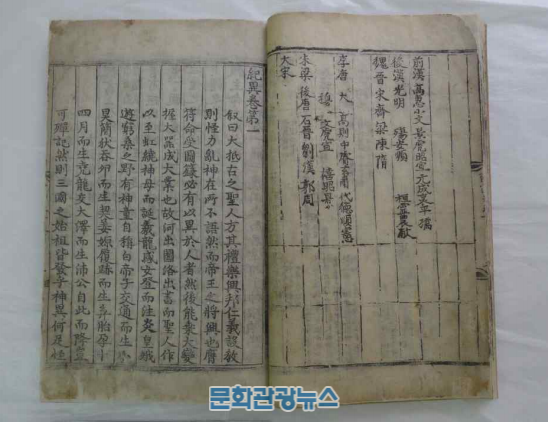 前漢 高惠小文景虎昭宣元成哀平孺
後漢光明 殤安順 桓靈獻
魏晉宋齊梁陳隋
李唐 太高則中睿玄肅代德順憲
穆敬
朱梁後唐石晉劉漢郭周
大宋
紀異卷第一
叙曰大抵古之聖人方其禮樂興邦仁義設教
則怪力亂神在所不語然而帝王之將興也膺
符命受圖籙必有以異於人者然後能乘大變
握大器成大業也故河出圖洛出書而聖人作
以至虹繞神母而誕羲龍感女登而注炎皇娥
遊窮桑之野有神童自稱白帝子交通而生小
昊簡狄吞卵而生契姜嫄履跡而生弃胎孕十
四月而生堯龍交大澤而生沛公自此而降豈
可殫記然則三國之始祖皆發乎神異何足怪
문화관광뉴스